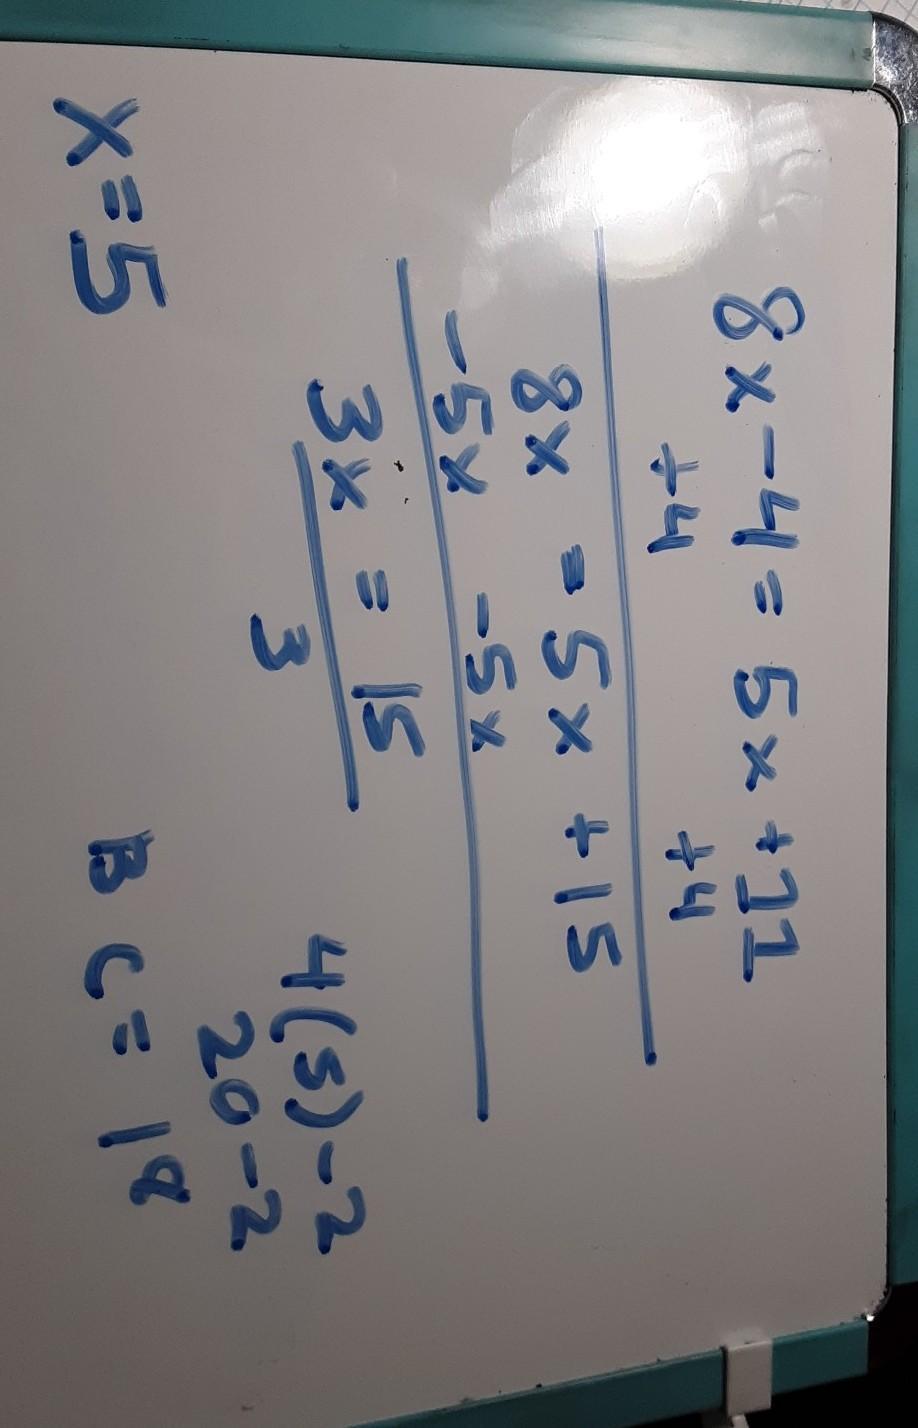 8x - 4 = 5x + 11
+4 +4
8x = 5x + 15
-5x -5x
3x = 15
3
x = 5
4(5) - 2
20 - 2
BC = 18